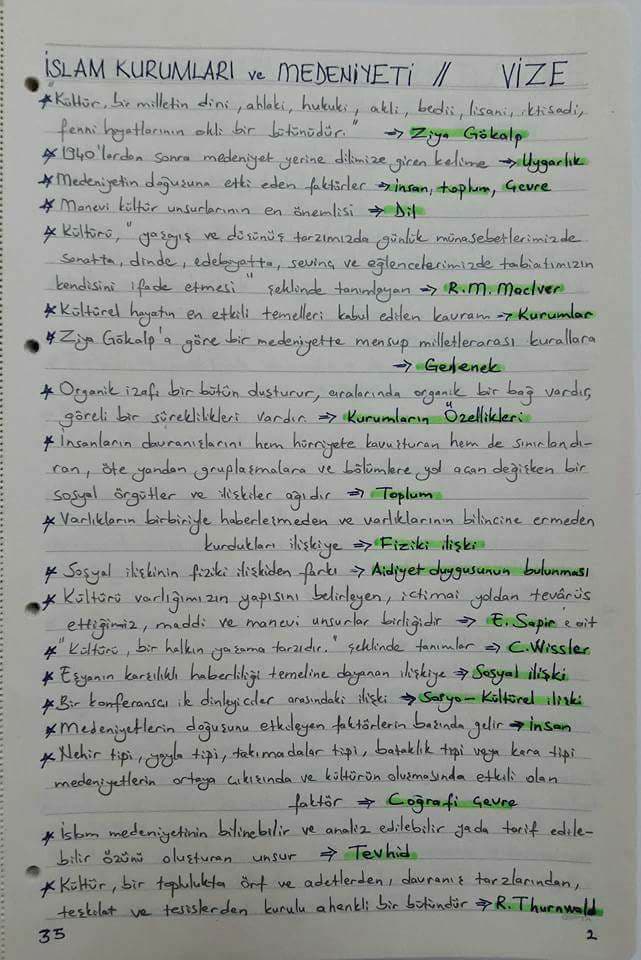 İSLAM KURUMLARI ve MEDENİYETİ // VİZE
* "Kültür, bir milletin dini, ahlaki, hukuki, akli, bedii, lisani, iktisadi,
fenni hayatlarının akli bir bütünüdür." ⇒ Ziya Gökalp
* 1940'lardan sonra medeniyet yerine dilimize giren kelime ⇒ Uygarlık
* Medeniyetin doğuşuna etki eden faktörler ⇒ insan, toplum, Çevre
* Manevi kültür unsurlarının en önemlisi ⇒ Dil
* Kültürü, "yaşayış ve düşünüş tarzımızda, günlük münasebetlerimizde
sanatta, dinde, edebiyatta, sevinç ve eğlencelerimizde tabiatımızın
kendisini ifade etmesi" şeklinde tanımlayan ⇒ R.M. MacIver
* Kültürel hayatın en etkili temelleri kabul edilen kavram ⇒ Kurumlar
* Ziya Gökalp'a göre bir medeniyette mensup milletlerarası kurallara
⇒ Gelenek
* Organik izafi bir bütün oluşturur, aralarında organik bir bağ vardır,
göreli bir süreklilikleri vardır. ⇒ Kurumların Özellikleri
* İnsanların davranışlarını hem hürriyete kavuşturan hem de sınırlandı-
ran, öte yandan gruplaşmalara ve bölümlere yol açan değişken bir
sosyal örgütler ve ilişkiler ağıdır ⇒ Toplum
* Varlıkların birbiriyle haberleşmeden ve varlıklarının bilincine ermeden
kurdukları ilişkiye ⇒ Fiziki ilişki
* Sosyal ilişkinin fiziki ilişkiden farkı ⇒ Aidiyet duygusunun bulunması
* Kültürü varlığımızın yapısını belirleyen, içtimai yoldan tevârüs
ettiğimiz, maddi ve manevi unsurlar birliğidir ⇒ E. Sapir'e ait
* "Kültürü, bir halkın yaşama tarzıdır." şeklinde tanımlar ⇒ C. Wissler
* Eşyanın karşılıklı haberliliği temeline dayanan ilişkiye ⇒ Sosyal ilişki
* Bir konferanscı ile dinleyiciler arasındaki ilişki ⇒ Sosyo-Kültürel ilişki
* Medeniyetlerin doğuşunu etkileyen faktörlerin başında gelir ⇒ insan
* Nehir tipi, yayla tipi, takımadalar tipi, bataklık tipi veya kara tipi
medeniyetlerin ortaya çıkışında ve kültürün oluşmasında etkili olan
faktör ⇒ Coğrafi Çevre
* İslam medeniyetinin bilinebilir ve analiz edilebilir yada tarif edile-
bilir özünü oluşturan unsur ⇒ Tevhid
* Kültür, bir toplulukta örf ve adetlerden, davranış tarzlarından,
teşkilat ve tesislerden kurulu ahenkli bir bütündür ⇒ R. Thurnwald
35 2